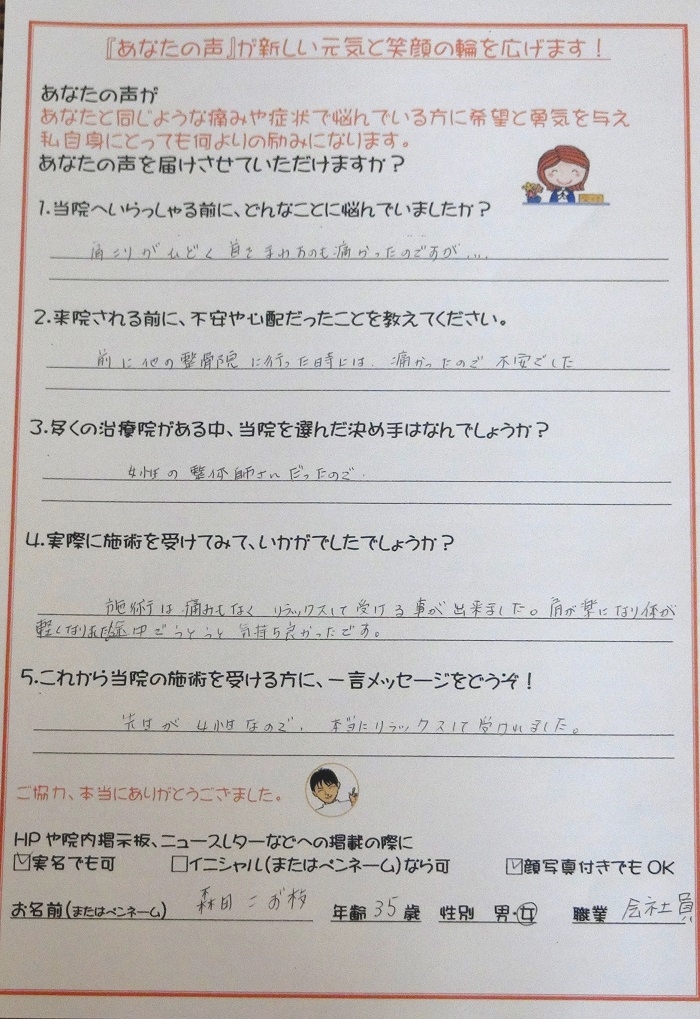 『あなたの声』が新しい元気と笑顔の輪を広げます!
あなたの声が
あなたと同じような痛みや症状で悩んでいる方に希望と勇気を与え
私自身にとっても何よりの励みになります。
あなたの声を届けさせていただけますか?
1.当院へいらっしゃる前に、どんなことに悩んでいましたか?
肩こりがひどく 首をまわすのも痛かったのですが...
2.来院される前に、不安や心配だったことを教えてください。
前に他の整骨院に行った時には、痛かったので 不安でした
3.多くの治療院がある中、当院を選んだ決め手はなんでしょうか?
女性の整体師さんだったので.
4.実際に施術を受けてみて、いかがでしたでしょうか?
施術は痛みもなく リラックスして受ける事が出来ました。肩が楽になり体が
軽くなりました 途中でうとうと気持ち良かったです。
5.これから当院の施術を受ける方に、一言メッセージをどうぞ!
先生が女性なので、本当にリラックスして受けれました。
ご協力、本当にありがとうごさました。
HPや院内掲示板、ニュースレターなどへの掲載の際に
☑実名でも可 □イニシャル(またはペンネーム)なら可 ☑顔写真付きでもOK
お名前(またはペンネーム) 森田 年齢 35 歳 性別 男・女 職業 会社員